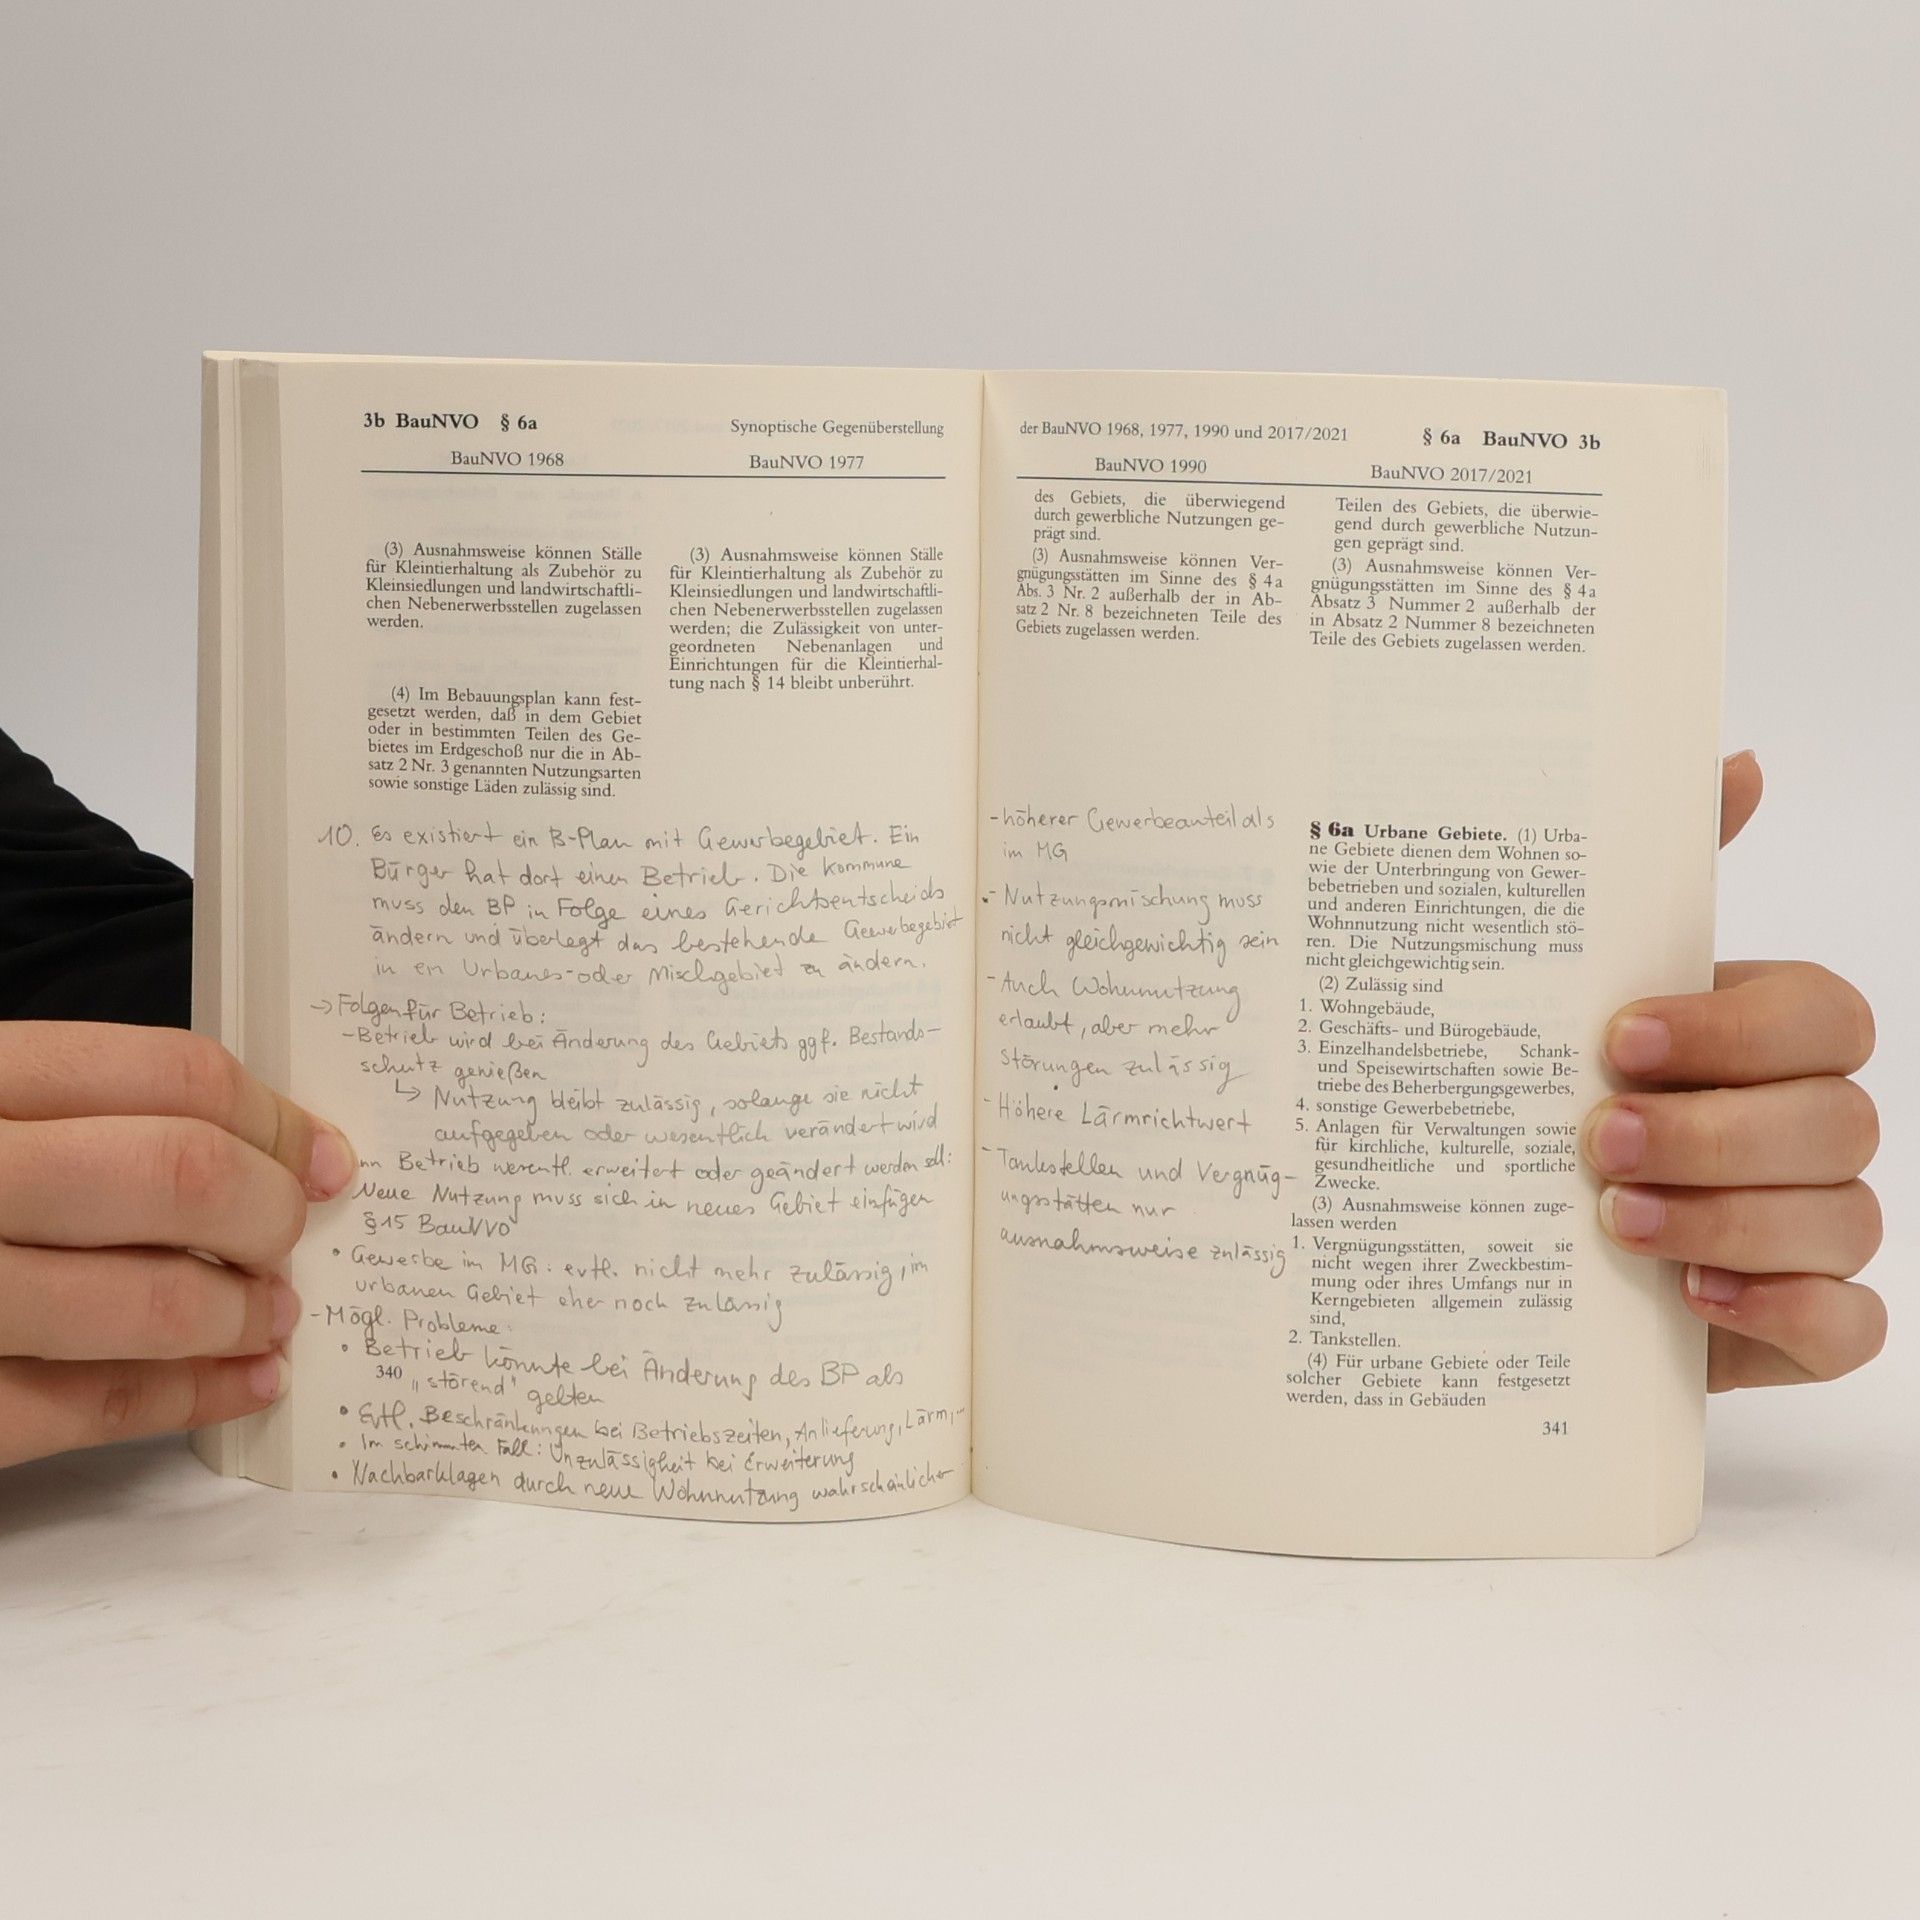 3b BauNVO § 6a
Synoptische Gegenüberstellung
BauNVO 1968
BauNVO 1977
(3) Ausnahmsweise können Ställe
für Kleintierhaltung als Zubehör zu
Kleinsiedlungen und landwirtschaftli-
chen Nebenerwerbsstellen zugelassen
werden.
(4) Im Bebauungsplan kann fest-
gesetzt werden, daß in dem Gebiet
oder in bestimmten Teilen des Ge-
bietes im Erdgeschoß nur die in Ab-
satz 2 Nr. 3 genannten Nutzungsarten
sowie sonstige Läden zulässig sind.
(3) Ausnahmsweise können Ställe
für Kleintierhaltung als Zubehör zu
Kleinsiedlungen und landwirtschaftli-
chen Nebenerwerbsstellen zugelassen
werden; die Zulässigkeit von unter-
geordneten Nebenanlagen und
Einrichtungen für die Kleintierhal-
tung nach § 14 bleibt unberührt.
10. Es existiert ein B-Plan mit Gewerbegebiet. Ein
Bürger hat dort einen Betrieb. Die Kommune
muss den BP in Folge eines Gerichtsentscheids
ändern und überlegt das bestehende Gewerbegebiet
in ein Urbanes- oder Mischgebiet zu ändern.
→ Folgen für Betrieb:
- Betrieb wird bei Änderung des Gebiets ggf. Bestands-
schutz genießen
↳ Nutzung bleibt zulässig, solange sie nicht
aufgegeben oder wesentlich verändert wird
nn Betrieb wesentl. erweitert oder geändert werden soll:
Neue Nutzung muss sich in neues Gebiet einfügen
§15 BauNVO
• Gewerbe im MG: evtl. nicht mehr zulässig, im
urbanen Gebiet eher noch zulässig
- Mögl. Probleme:
• Betrieb könnte bei Änderung des BP als
340 „störend" gelten
• Evtl. Beschränkungen bei Betriebszeiten, Anlieferung, Lärm, ...
• Im schlimmsten Fall: Unzulässigkeit bei Erweiterung
• Nachbarklagen durch neue Wohnnutzung wahrscheinlicher
der BauNVO 1968, 1977, 1990 und 2017/2021
§ 6a BauNVO 3b
BauNVO 1990
BauNVO 2017/2021
des Gebiets, die überwiegend
durch gewerbliche Nutzungen ge-
prägt sind.
(3) Ausnahmsweise können Ver-
gnügungsstätten im Sinne des § 4a
Abs. 3 Nr. 2 außerhalb der in Ab-
satz 2 Nr. 8 bezeichneten Teile des
Gebiets zugelassen werden.
- höherer Gewerbeanteil als
im MG
- Nutzungsmischung muss
nicht gleichgewichtig sein
- Auch Wohnnutzung
erlaubt, aber mehr
Störungen zulässig
- Höhere Lärmrichtwert
- Tankstellen und Vergnüg-
ungsstätten nur
ausnahmsweise zulässig
Teilen des Gebiets, die überwie-
gend durch gewerbliche Nutzun-
gen geprägt sind.
(3) Ausnahmsweise können Ver-
gnügungsstätten im Sinne des § 4a
Absatz 3 Nummer 2 außerhalb der
in Absatz 2 Nummer 8 bezeichneten
Teile des Gebiets zugelassen werden.
§ 6a Urbane Gebiete. (1) Urba-
ne Gebiete dienen dem Wohnen so-
wie der Unterbringung von Gewer-
bebetrieben und sozialen, kulturellen
und anderen Einrichtungen, die die
Wohnnutzung nicht wesentlich stö-
ren. Die Nutzungsmischung muss
nicht gleichgewichtig sein.
(2) Zulässig sind
1. Wohngebäude,
2. Geschäfts- und Bürogebäude,
3. Einzelhandelsbetriebe, Schank-
und Speisewirtschaften sowie Be-
triebe des Beherbergungsgewerbes,
4. sonstige Gewerbebetriebe,
5. Anlagen für Verwaltungen sowie
für kirchliche, kulturelle, soziale,
gesundheitliche und sportliche
Zwecke.
(3) Ausnahmsweise können zuge-
lassen werden
1. Vergnügungsstätten, soweit sie
nicht wegen ihrer Zweckbestim-
mung oder ihres Umfangs nur in
Kerngebieten allgemein zulässig
sind,
2. Tankstellen.
(4) Für urbane Gebiete oder Teile
solcher Gebiete kann festgesetzt
werden, dass in Gebäuden
341